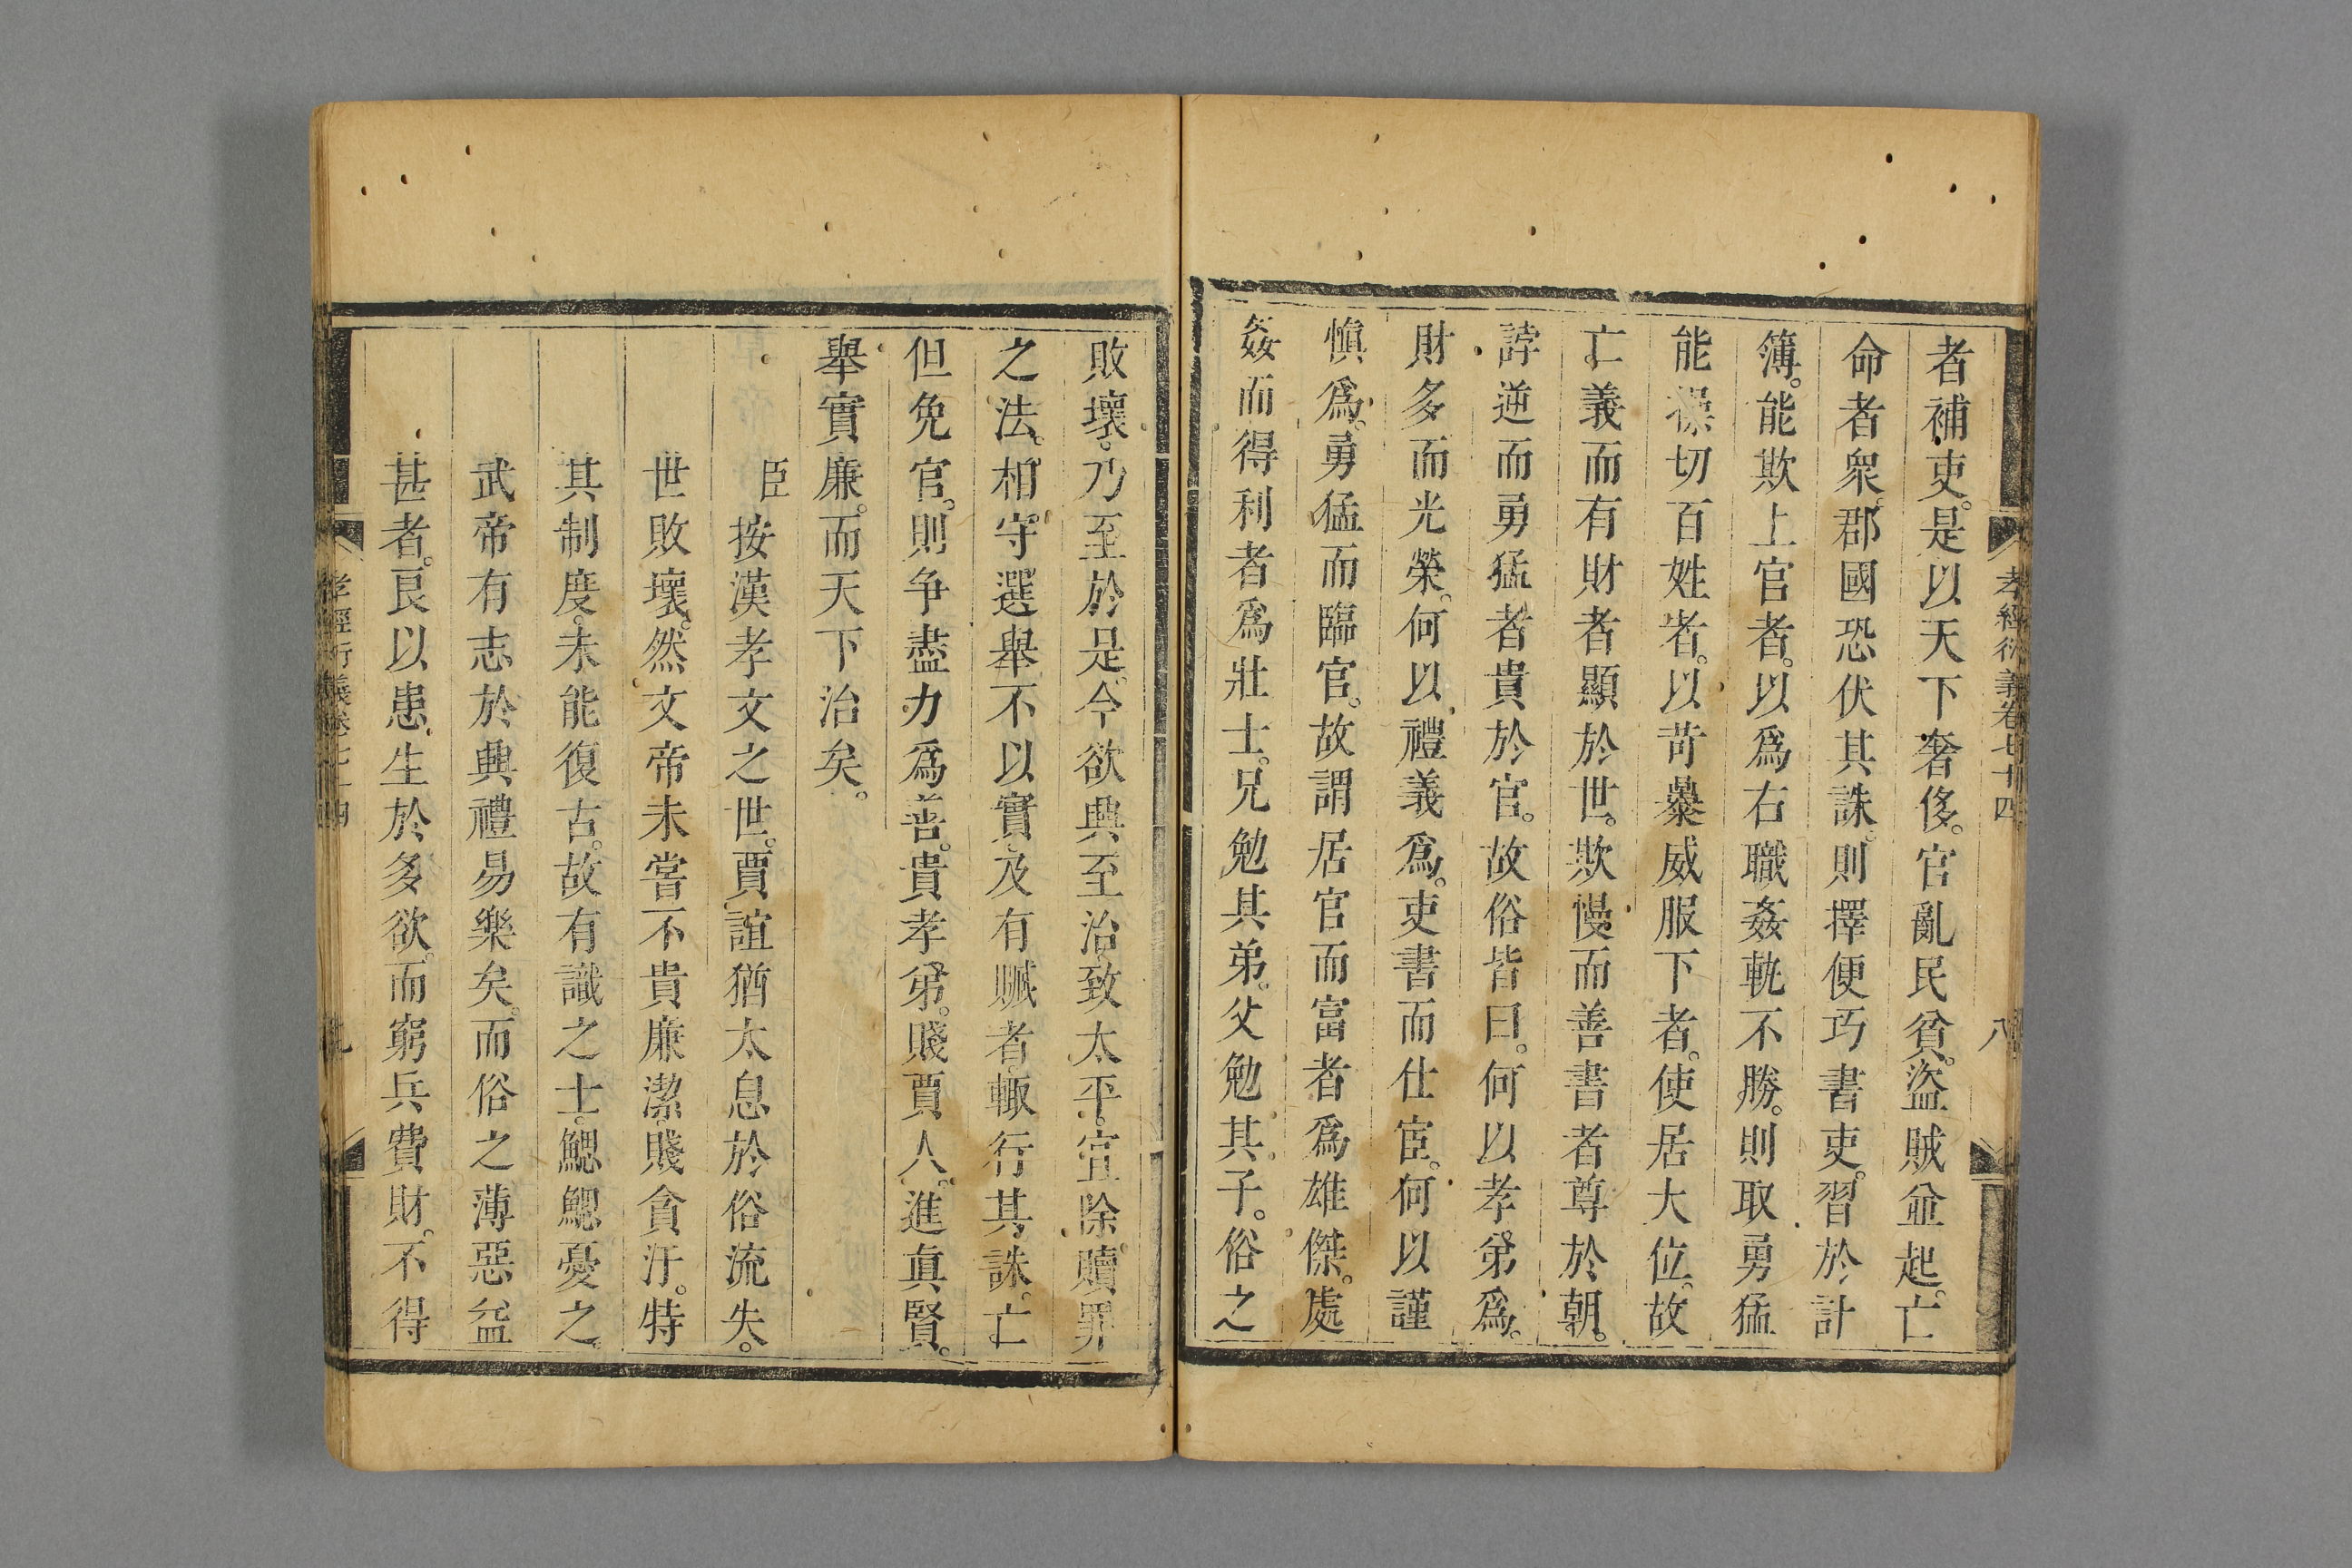 孝經衍義卷七十四
八
者補吏。是以天下奢侈。官亂民貧。盜賊並起。亡
命者衆。郡國恐伏其誅。則擇便巧書吏。習於計
簿。能欺上官者。以爲右職姦軌不勝。則取勇猛
能操切百姓者。以苛暴威服下者。使居大位。故
亡義而有財者顯於世。欺慢而善書者尊於朝。
誖逆而勇猛者貴於官。故俗皆曰。何以孝弟爲。
財多而光榮。何以禮義爲。吏書而仕宦。何以謹
愼爲。勇猛而臨官。故謂居官而富者爲雄傑。處
姦而得利者爲壯士。兄勉其弟。父勉其子。俗之
敗壞。乃至於是。今欲興至治。致太平。宜除贖罪
之法。相。守選舉不以實。及有贓者。輙行其誅。亡
但免官。則争盡力爲善。貴孝弟。賤賈人。進眞賢。
舉實廉。而天下治矣。
臣按漢孝文之世。賈誼猶太息於俗流失。
世敗壞。然文帝未嘗不貴廉潔。賤貪汙。特
其制度。未能復古。故有識之士。鰓鰓憂之。
武帝有志於興禮易樂矣。而俗之薄惡益
甚者。良以患生於多欲。而窮兵費財。不得
孝經衍義卷七十四
九